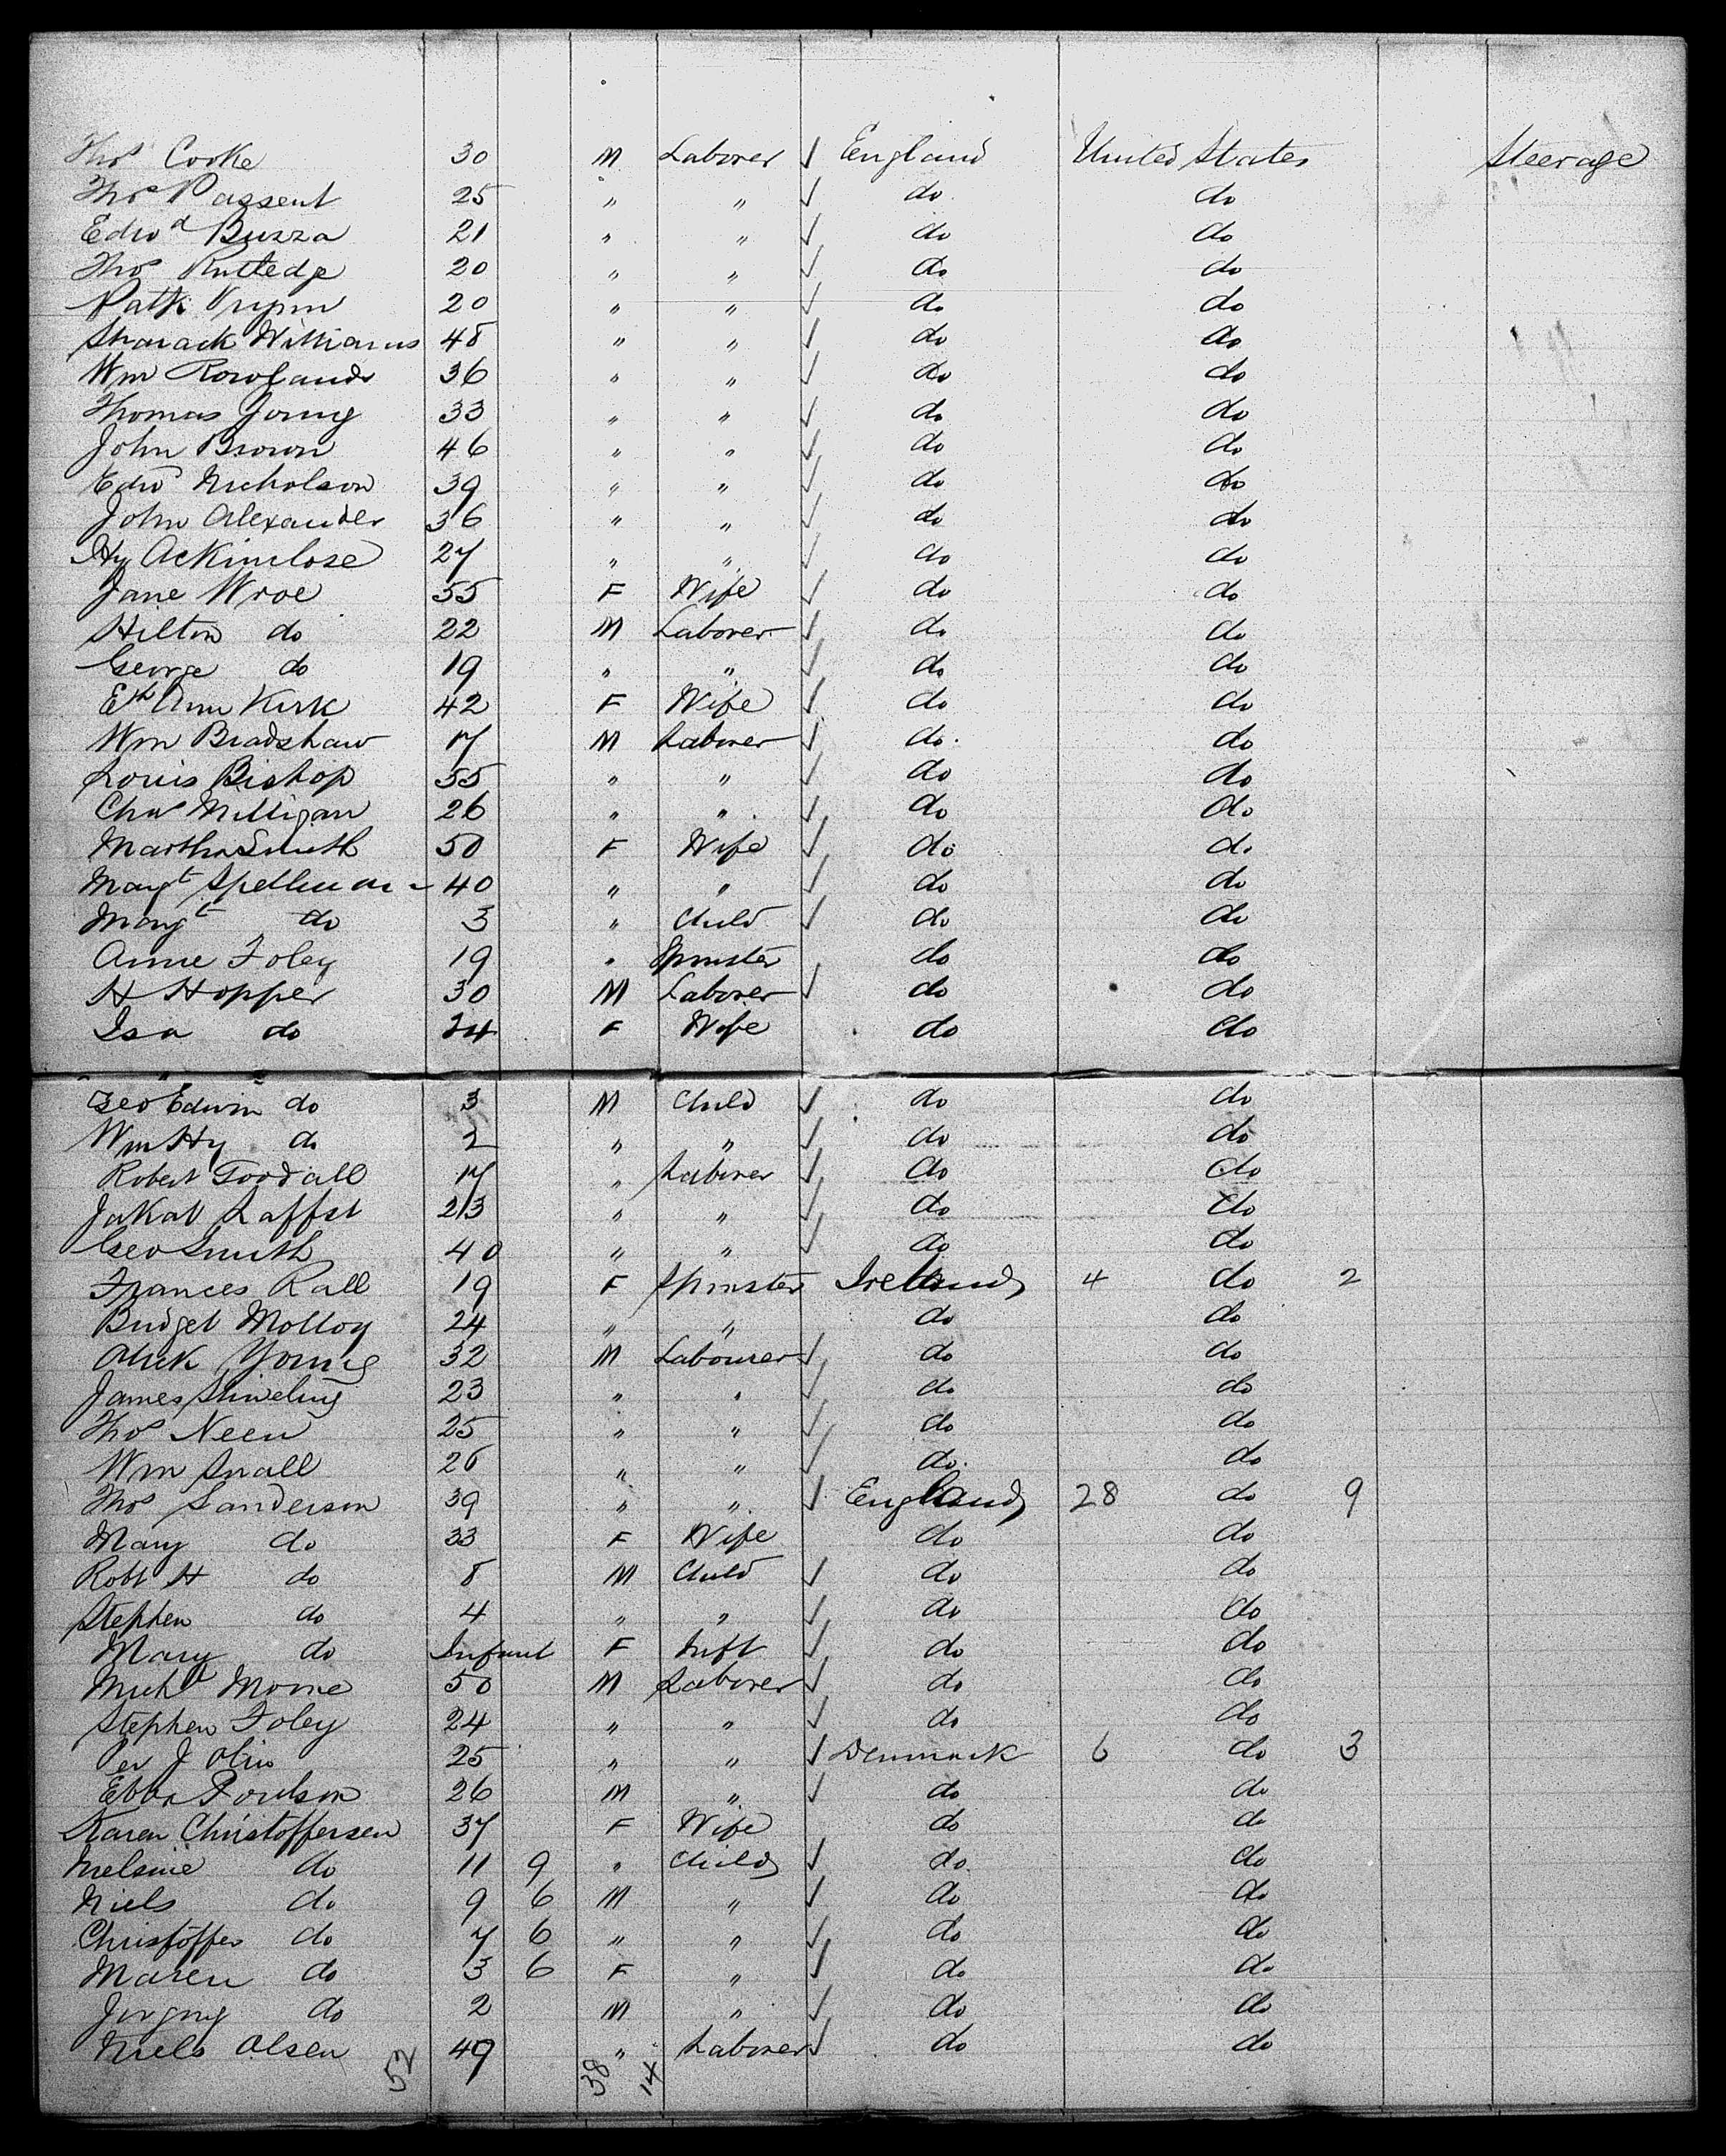 Thos Cooke 30 M Laborer √ England United States Steerage
Thos Passent 25 " " √ do do
Edwd Buzza 21 " " √ do do
Thos Rutledge 20 " " √ do do
Patk 20 " " √ do do
Williams 48 " " √ do do
Wm Rowlands 36 " " √ do do
Thomas Young 33 " " √ do do
John Brown 46 " " √ do do
Edwd Nicholson 39 " " √ do do
John Alexander 36 " " √ do do
Hy Ackinclose 27 " " √ do do
Jane Wroe 55 F Wife √ do do
Hilton do 22 M Laborer √ do do
George do 19 " " √ do do
Eth Ann Kirk 42 F Wife √ do do
Wm Bradshaw 17 M Laborer √ do do
Louis Bishop 55 " " √ do do
Chas Milligan 26 " " √ do do
Martha Smith 50 F Wife √ do do
Margt Spellman 40 " " √ do do
Margt do 3 " Child √ do do
Anne Foley 19 " Spinster do do
H Hopper 30 M Laborer √ do do
Isa do 24 F Wife do do
Geo Edwin do 3 M Child √ do do
Wm Hy do 2 " " √ do do
Robert Goodall 17 " Laborer √ do do
Jakob Laffst 23 " " √ do do
Geo Smith 40 " " √ do do
Frances Rall 19 F Spinster Ireland 4 do 2
Bridget Molloy 24 " " do do
Mick Young 32 M Labourer √ do do
James 23 " " √ do do
Thos Neen 25 " " √ do do
Wm Snall 26 " " √ do do
Thos Sanderson 39 " " √ England 28 do 9
Mary do 33 F Wife do do
Robt H do 8 M Child √ do do
Stephen do 4 " " √ do do
Mary do Infant F Inft √ do do
Michl Morne 50 M Laborer √ do do
Stephen Foley 24 " " √ do do
Per J 25 " " √ Denmark 6 do 3
Ebba Poulson 26 M " √ do do
Karen Christoffersen 37 F Wife do do
Melsine do 11 9 " Child √ do do
Niels do 9 6 M " √ do do
Christoffer do 7 6 " " √ do do
Maren do 3 6 F " √ do do
do 2 M " √ do do
Niels Olsen 49 " Laborer √ do do
52 38 14